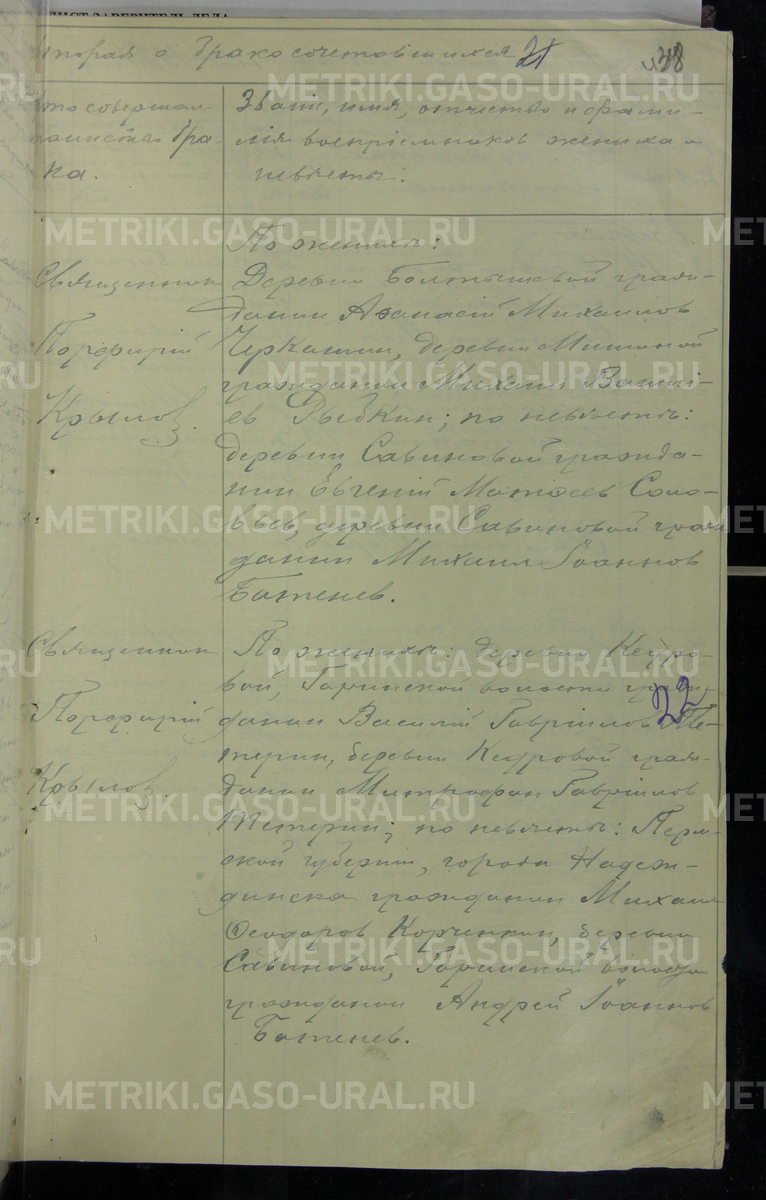 ЛИСТ-ЗАВЕРИТЕЛЬ ДЕЛА
вторая о бракосочетавшихся 21 38
Кто совершал
таинство бра-
ка.
Званіе, имя, отчество и фами-
лія воспріемников жениха и
невѣсты.
Священник
Порфирій
Крылов
По женихѣ:
Деревни Болтышевой граж-
данин Афанасій Михаилов
Черкашин, деревни Мишиной
гражданин Михаил Василі-
ев Рыбкин; по невѣстѣ:
деревни Савиновой гражда-
нин Евгеній Матфеев Соло-
вьев, деревни Савиновой граж
данин Михаил Іоаннов
Боженев.
Священник
Порфирій
Крылов
По женихѣ: деревни Кедро-
вой, Гаринской волости граж-
22
данин Василій Гавріилов Те-
терин, деревни Кедровой граж-
данин Митрофан Гавріилов
Тетерин; по невѣстѣ: Перм-
ской губерніи, города Надеж-
динска гражданин Михаил
Феодоров Корченкин, деревни
Савиновой, Гаринской волости
гражданин Андрей Іоаннов
Боженев.
METRIKI.GASO-URAL.RU